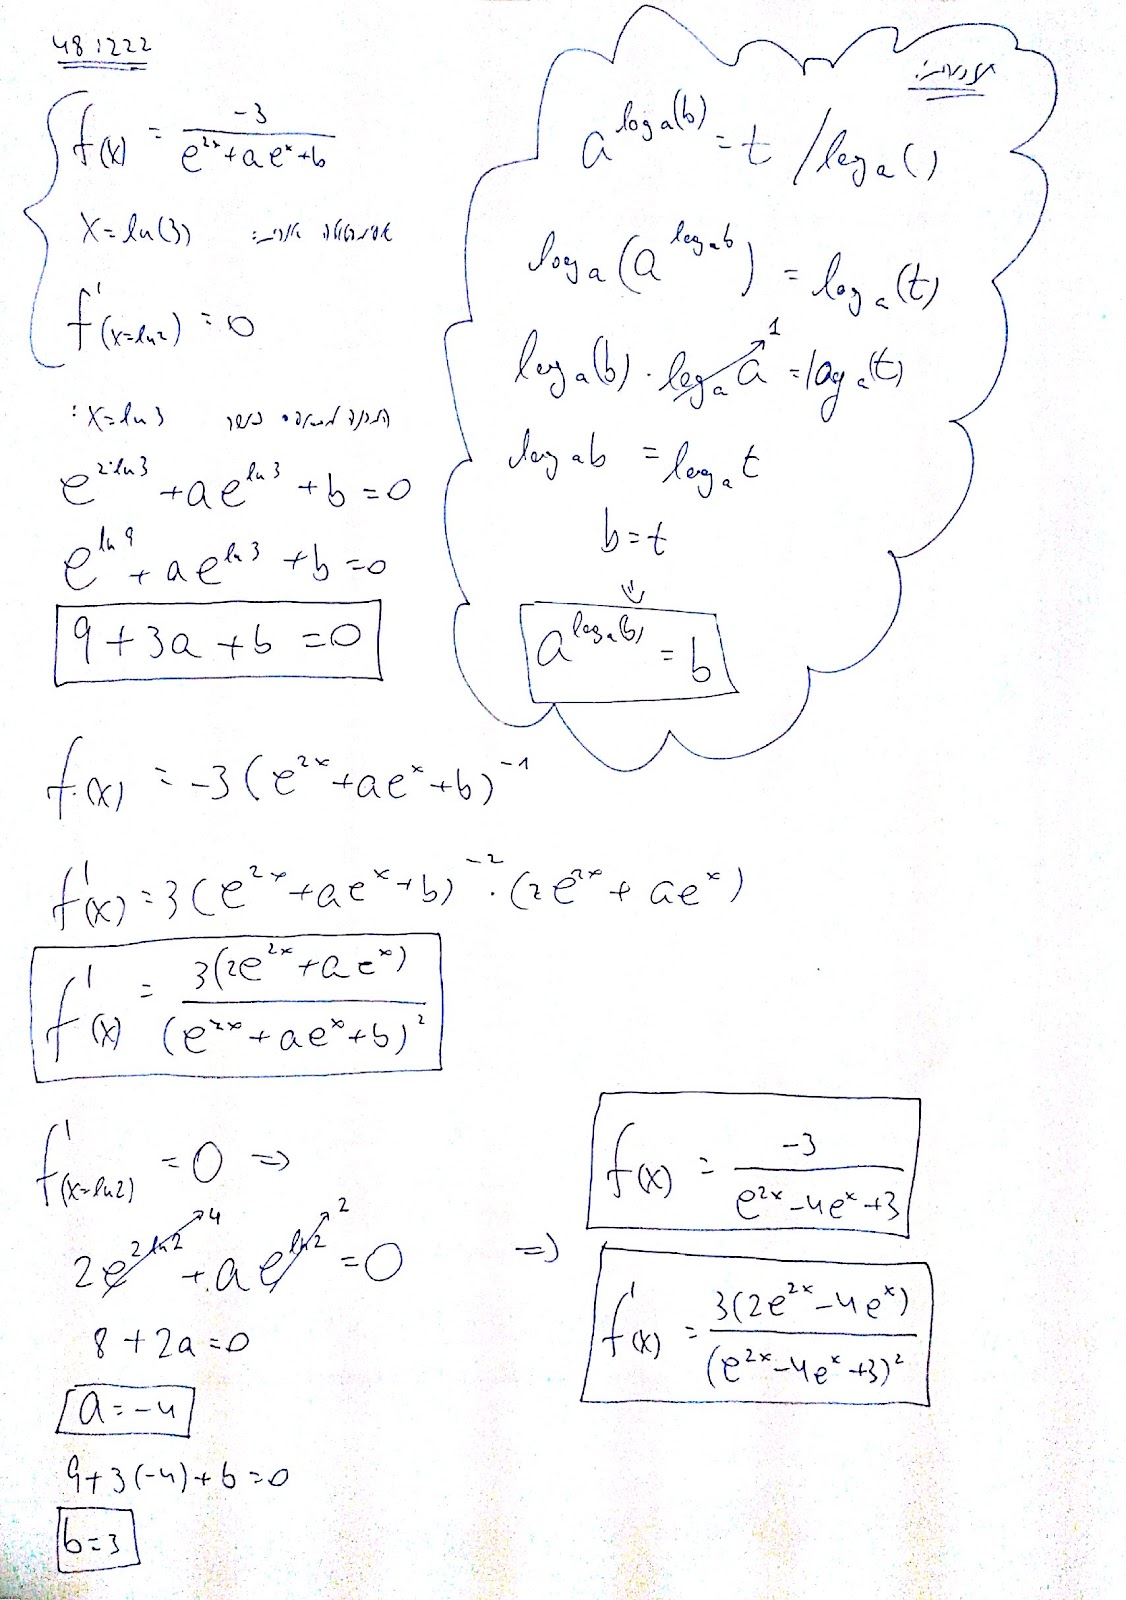 48 :222
f(x) = -3 / (e^{2x} + ae^x + b)
x = ln(3) אסימפטוטה אנכית:
f'(x=ln2) = 0
x = ln3 :
e^{2·ln3} + ae^{ln3} + b = 0
e^{ln9} + ae^{ln3} + b = 0
9 + 3a + b = 0
a^{log_a(b)} = t / log_a()
log_a(a^{log_a b}) = log_a(t)
log_a(b) · log_a a = log_a(t)
1
log_a b = log_a t
b = t
⇓
a^{log_a(b)} = b
f(x) = -3(e^{2x} + ae^x + b)^{-1}
f'(x) = 3(e^{2x} + ae^x + b)^{-2} · (2e^{2x} + ae^x)
f'(x) = 3(2e^{2x} + ae^x) / (e^{2x} + ae^x + b)^2
f'(x=ln2) = 0 =>
2e^{2ln2} + ae^{ln2} = 0
4 2
8 + 2a = 0
a = -4
9 + 3(-4) + b = 0
b = 3
=>
f(x) = -3 / (e^{2x} - 4e^x + 3)
f'(x) = 3(2e^{2x} - 4e^x) / (e^{2x} - 4e^x + 3)^2